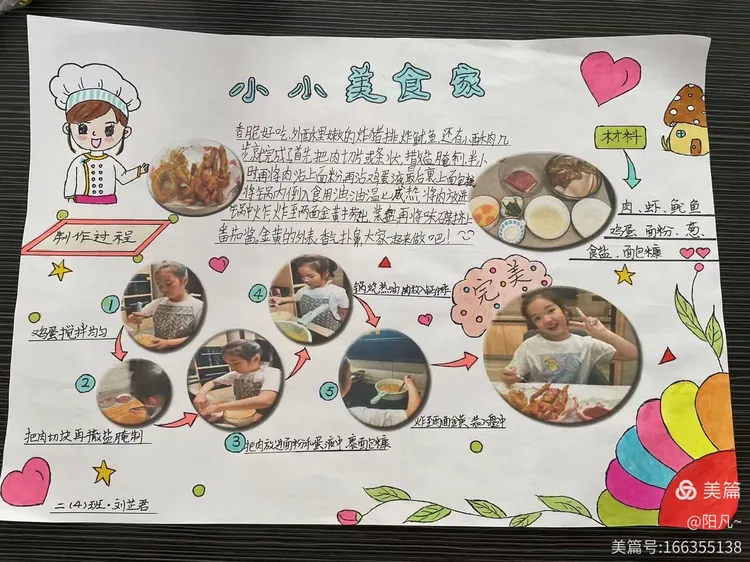 小小美食家
香脆好吃,外酥里嫩的炸猪排,炸鱿鱼,还有小酥肉几
步就完成了首先把肉切片或条状,撒盐腌制半小
时再将肉沾上面粉再沾鸡蛋液最后裹上面包糠
将锅内倒入食用油油温七成热将肉放进
锅中火炸炸至两面金黄捞出装盘再将
番茄酱,金黄的外表香气扑鼻大家一起来做吧!
材料
肉、虾、鱿鱼
鸡蛋 面粉、葱、
食盐、面包糠
制作过程
①
鸡蛋搅拌均匀
②
把肉切块再撒盐腌制
③把肉放进面粉和蛋液中,裹面包糠
④
锅烧热油
⑤
炸至两面金黄装盘中
完美
二(4)班·刘芷君
美篇
@阳凡~
美篇号:166355138